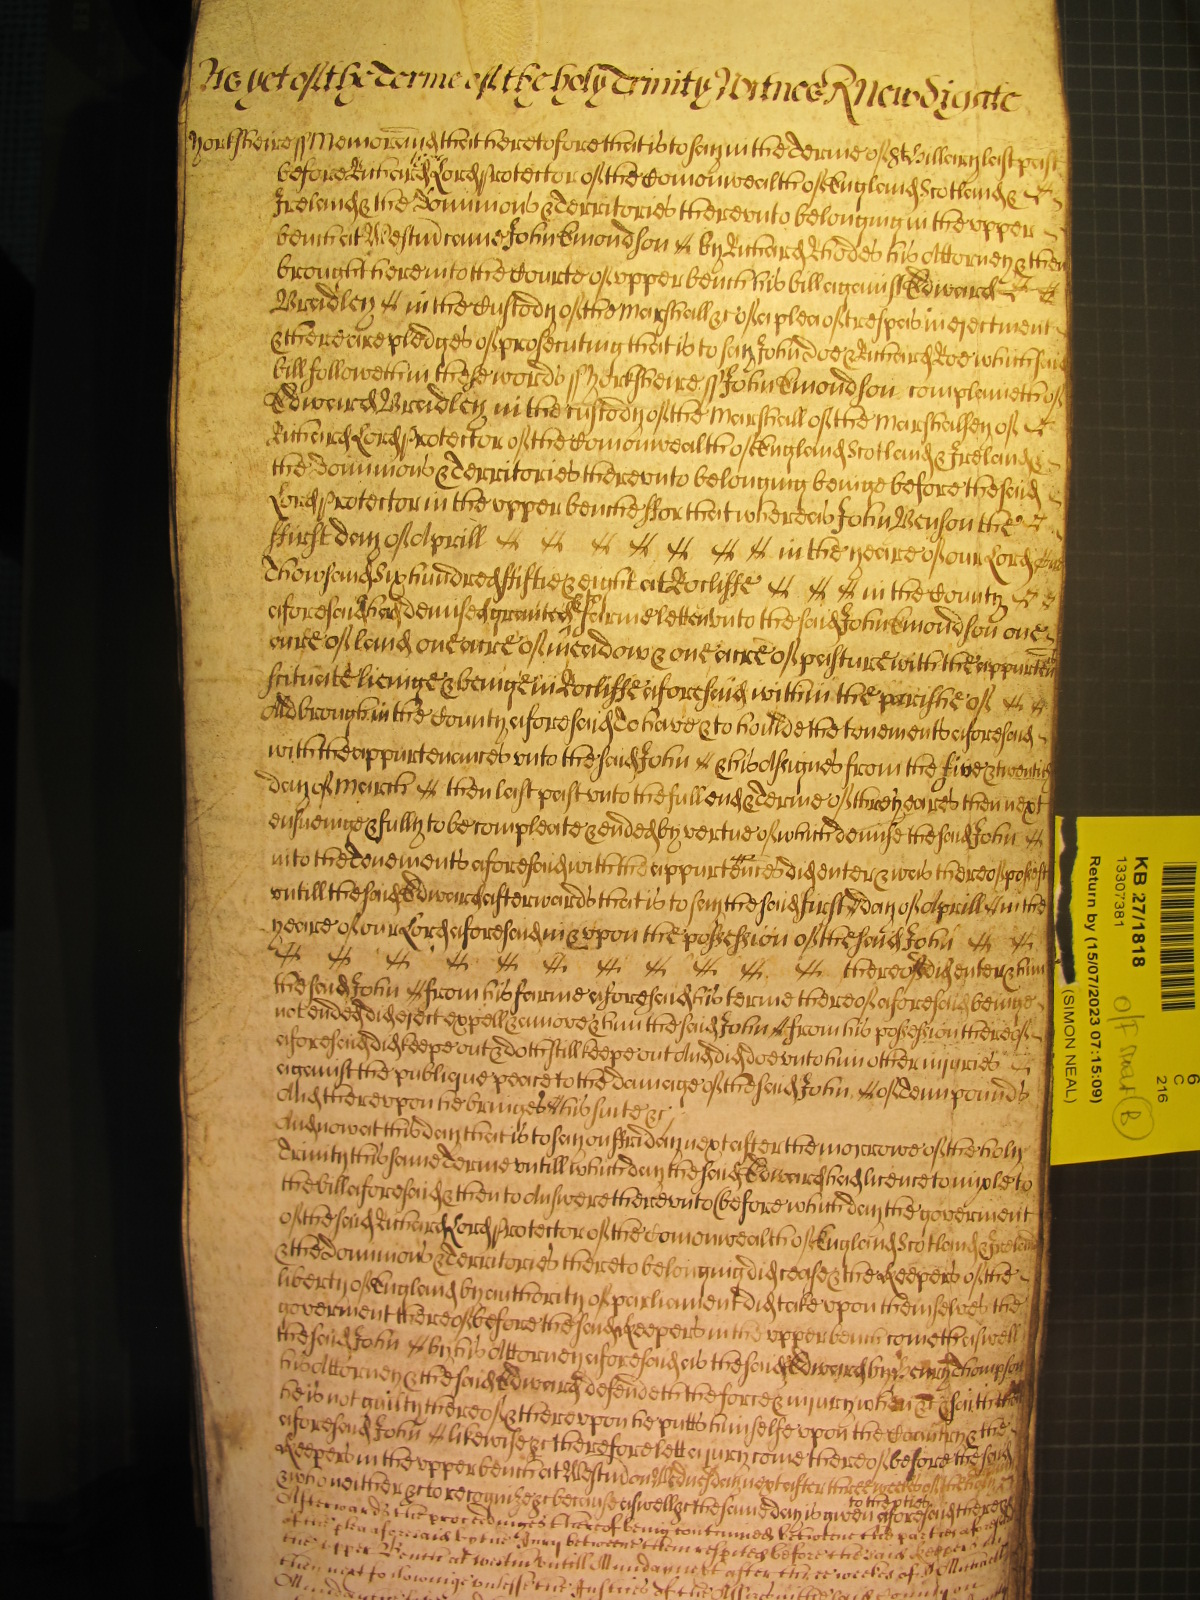 As yet of the Terme of the holy Trinity Witnes R Newdigate
Yorksheire ss Memorand that heretofore that is to say in the Terme of St Hillary last past
before Richard Lord Protector of the Comonwealth of England Scotland &
Ireland & the Dominions & Territories therevnto belonging in the vpper
bench at Westm came John Emondson by Richard Rhodes his Attorney & then
brought here into the Courte of vpper bench his bill against Edward
Bradley in the Custody of the Marshall &c of a plea of trespas in ejectment
& there are pledges of prosecuting that is to say John Doe & Richard Roe which said
bill followeth in these words ss Yorksheire ss John Emondson complaineth of
Edward Bradley in the custody of the Marshall of the Marshalsey of
Richard Lord Protector of the Comonwealth of England Scotland & Ireland &
the Dominions & Territories therevnto belonging beinge before the said
Lord Protector in the vpper benche ffor that whereas John Benson the
ffirst day of Aprill in the yeare of our Lord One
Thowsand Six hundred fiftie & eight at Rocliffe in the County
aforesaid had demised granted & to farme letten vnto the said John Emondson one
acre of land one acre of meadow & one acre of pasture with the appurten
scituate lieinge & beinge in Rocliffe aforesaid within the parishe of
Aldbrough in the County aforesaid To have & to houlde the tenements aforesaid
with the appurtenances vnto the said John & his Assignes from the five & twentith
day of March then last past vnto the full end & Terme of three yeares then next
ensueinge & fully to be compleate & ended by vertue of which demise the said John
into the Tenements aforesaid with the appurtences did enter & was thereof possest
vntill the said Edward afterwards that is to say the said first day of Aprill in the
yeare of our Lord aforesaid in & vpon the possession of the said John
thereof did enter & him
the said John from his farme aforesaid his terme thereof aforesaid beinge
not ended did eject expell & amove & him the said John from his possession thereof
aforesaid did keepe out & doth still keepe out And did doe vnto him other injuries
against the publique peace to the damage of the said John of Tenn pounds
And therevpon he bringes his suite &c
And now at this day that is to say on ffriday next after the morrowe of the holy
Trinity this same Terme vntill which day the said Edward had licence to imple to
the bill aforesaid & then to Answere therevnto (before which day the goverment
of the said Richard Lord Protector of the Comonwealth of England Scotland & Ireland
& the Dominions & Territories thereto belonging did cease & the Keepers of the
liberty of England by authority of parliament did take vpon themselves the
goverment thereof before the said Keepers in the vpper bench cometh aswell
the said John by his Attorney aforesaid as the said Edward by Henry Thompson
his Attorney & the said Edward defendeth the force & injury when &c & saith that
he is not guilty thereof & therevpon he putts himselfe vpon the Countrey & the
aforesaid John likewise &c therefore lett a jury come thereof before the said
Keepers in the vpper bench at Westm on Wednesday next after three weeks of the holy
& who neither &c to recognize &c because aswell &c the same day is given to the pties aforesaid there &c
Afterwards the proceedings thereof being continued betweene the parties aforesaid
of the plea aforesaid by the Jury betweene them respited before the said keepers in
the vpper Bench at westm vntill Munday next after three weeks of St Michaell
then next followinge vnlesse the Justices of the Assizes in the said County on
KB 27/1818
13307381
Return by (15/07/2023 07:15:09)
(SIMON NEAL)
6
C
216